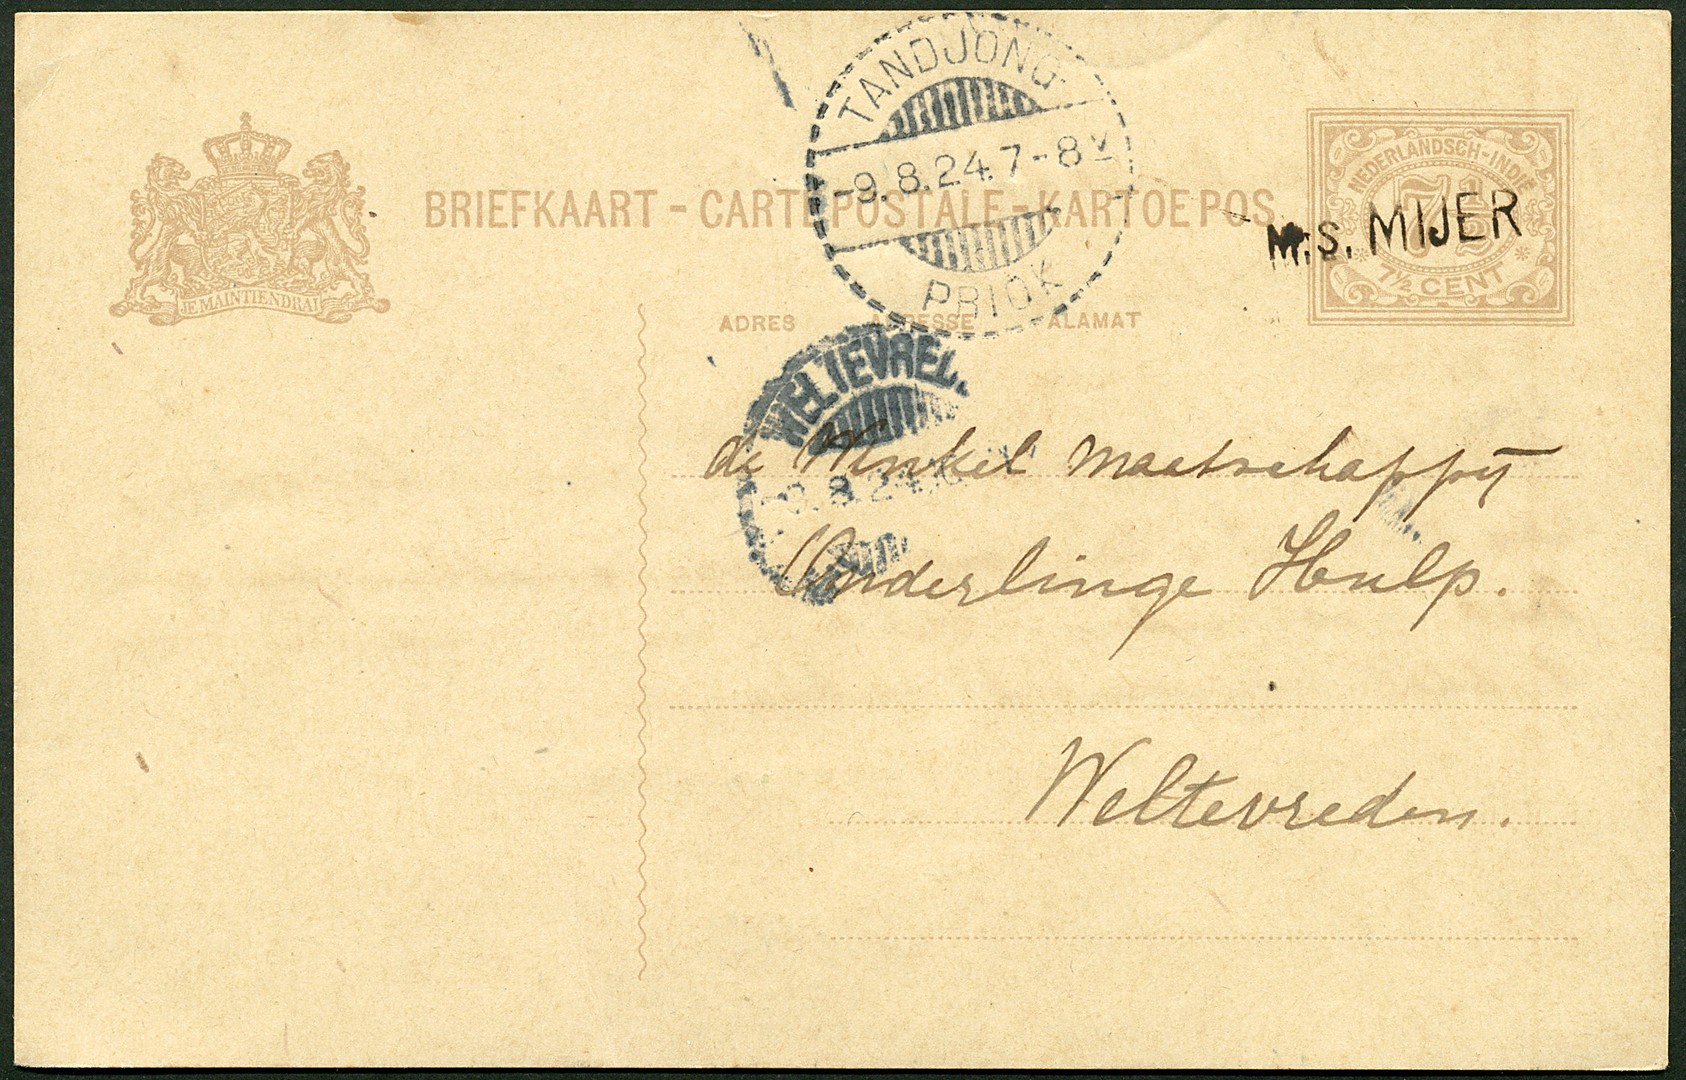 TANDJONG
-9.8.24.7-8V
PRIOK
BRIEFKAART - CARTE POSTALE - KARTOE POS
NEDERLANDSCH-INDIË
7½
7½ CENT
M.S. MIJER
JE MAINTIENDRAI
ADRES ADRESSE ALAMAT
WELTEVRED
8.24
de Winkel Maatschappij
Onderlinge Hulp.
Weltevreden.